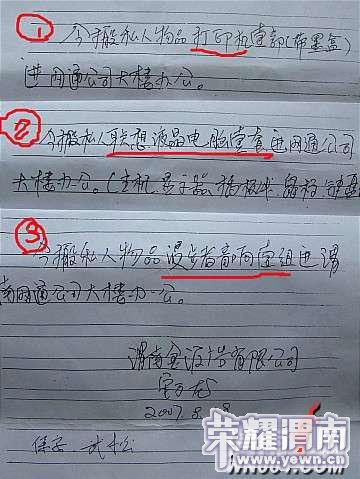 ① 今搬私人物品打印机壹部(带墨盒)
进网通公司大楼办公。
② 今搬私人联想液晶电脑壹套进网通公司
大楼办公。(主机、显示器、插板、
③ 今搬私人物品漫步者音响壹组进渭
南网通公司大楼办公。
渭南金 有限公司
2007.8.8
保安 武松
荣耀渭南
www.yewn.cn